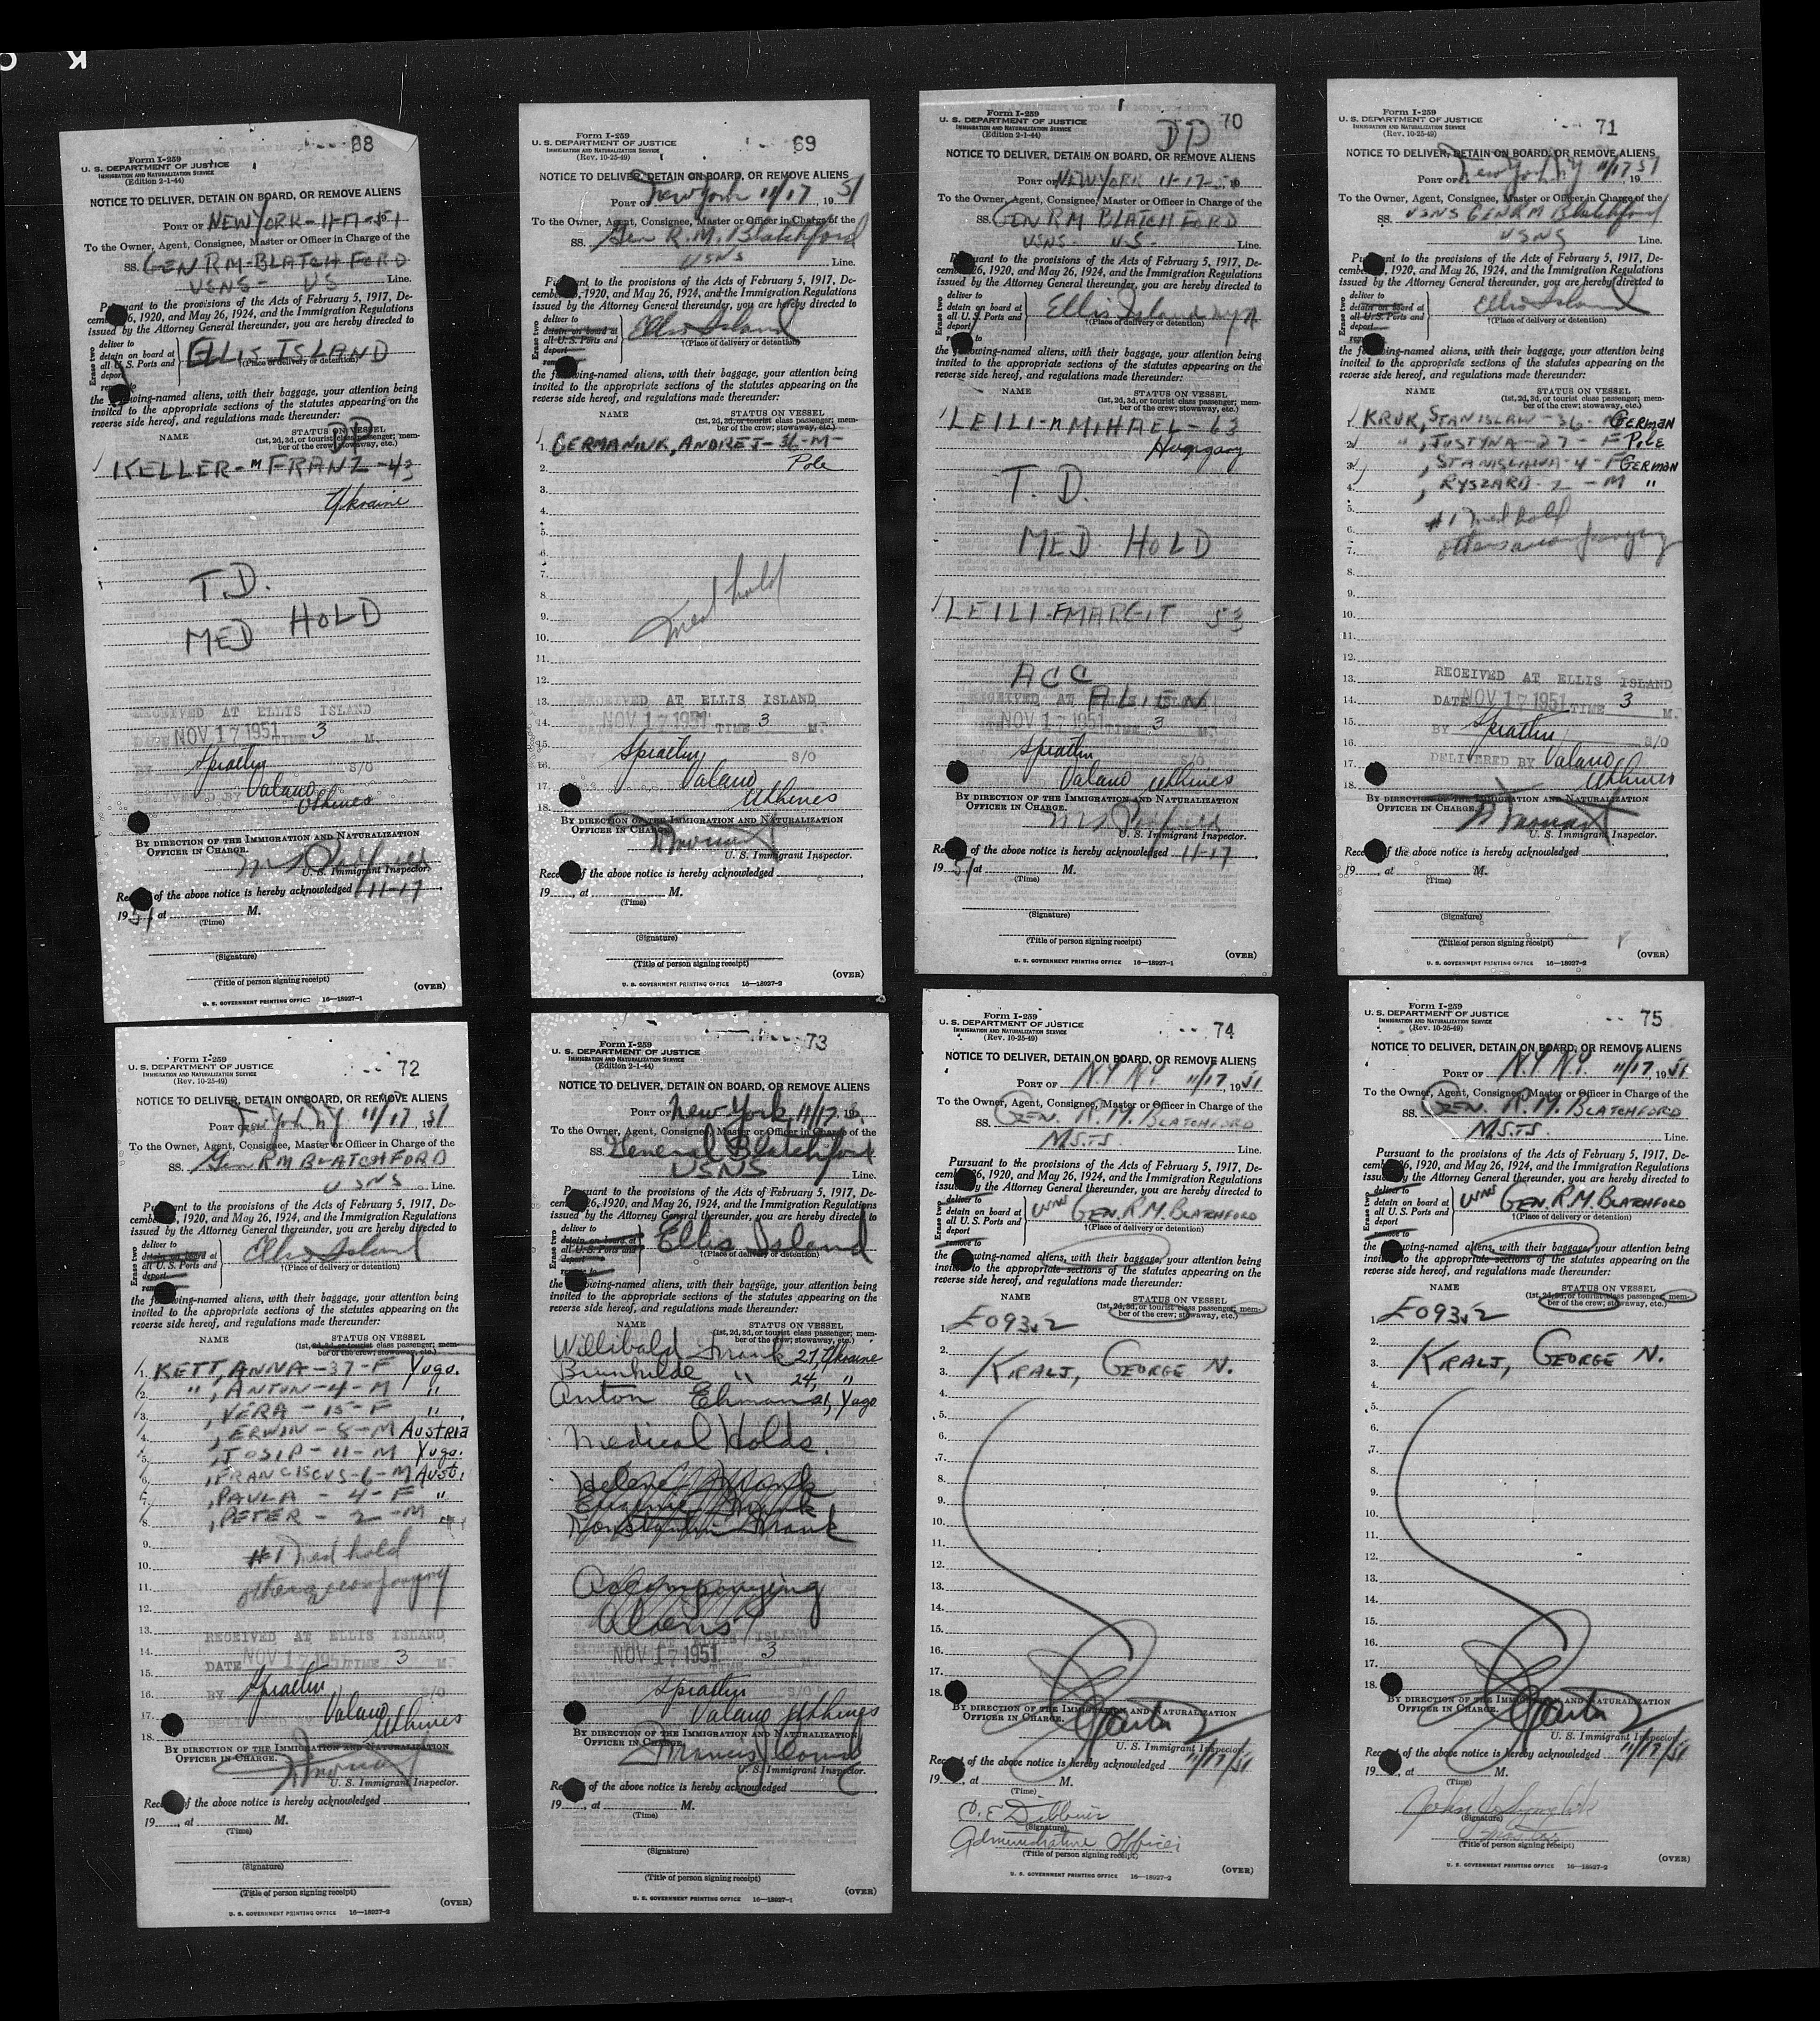 K
68
Form I-259
U. S. DEPARTMENT OF JUSTICE
IMMIGRATION AND NATURALIZATION SERVICE
(Edition 2-1-44)
NOTICE TO DELIVER, DETAIN ON BOARD, OR REMOVE ALIENS
PORT OF NEW YORK-11-17-51
To the Owner, Agent, Consignee, Master or Officer in Charge of the
SS. GEN RM-BLATCH FORD
USNS- US Line.
Pursuant to the provisions of the Acts of February 5, 1917, De-
cember 26, 1920, and May 26, 1924, and the Immigration Regulations
issued by the Attorney General thereunder, you are hereby directed to
Erase two
deliver to
detain on board at
all U. S. Ports and
deport
ELLIS ISLAND
†(Place of delivery or detention)
the following-named aliens, with their baggage, your attention being
invited to the appropriate sections of the statutes appearing on the
reverse side hereof, and regulations made thereunder:
NAME STATUS ON VESSEL
(1st, 2d, 3d, or tourist class passenger; mem-
ber of the crew; stowaway, etc.)
KELLER-M FRANZ-43
Ukraine
T.D.
MED HOLD
RECEIVED AT ELLIS ISLAND
DATE NOV 17 1951 TIME 3 M.
BY Spratlin S/O
DELIVERED BY Valano
BY DIRECTION OF THE IMMIGRATION AND NATURALIZATION
OFFICER IN CHARGE.
U. S. Immigrant Inspector.
Receipt of the above notice is hereby acknowledged 11-17
1951 at M.
(Time)
(Signature)
(Title of person signing receipt)
(OVER)
U. S. GOVERNMENT PRINTING OFFICE 16—18927-1
69
Form I-259
U. S. DEPARTMENT OF JUSTICE
IMMIGRATION AND NATURALIZATION SERVICE
(Rev. 10-25-49)
NOTICE TO DELIVER, DETAIN ON BOARD, OR REMOVE ALIENS
PORT OF New York 11/17, 1951
To the Owner, Agent, Consignee, Master or Officer in Charge of the
SS. Gen R.M. Blatchford
USNS Line.
Pursuant to the provisions of the Acts of February 5, 1917, De-
cember 26, 1920, and May 26, 1924, and the Immigration Regulations
issued by the Attorney General thereunder, you are hereby directed to
Erase two
deliver to
detain on board at
all U. S. Ports and
deport
Ellis Island
†(Place of delivery or detention)
the following-named aliens, with their baggage, your attention being
invited to the appropriate sections of the statutes appearing on the
reverse side hereof, and regulations made thereunder:
NAME STATUS ON VESSEL
(1st, 2d, 3d, or tourist class passenger; mem-
ber of the crew; stowaway, etc.)
1. GERMANIUK, ANDREJ-36-M-
2. Pole
3.
4.
5.
6.
7.
8.
9. Med hold
10.
11.
12.
13. RECEIVED AT ELLIS ISLAND
14. DATE NOV 17 1951 TIME 3 M.
15. Spratlin S/O
16. Valano
17.
18.
BY DIRECTION OF THE IMMIGRATION AND NATURALIZATION
OFFICER IN CHARGE.
U. S. Immigrant Inspector.
Receipt of the above notice is hereby acknowledged
19 , at M.
(Time)
(Signature)
(Title of person signing receipt)
(OVER)
U. S. GOVERNMENT PRINTING OFFICE 16—18927-2
70
DP
Form I-259
U. S. DEPARTMENT OF JUSTICE
IMMIGRATION AND NATURALIZATION SERVICE
(Edition 2-1-44)
NOTICE TO DELIVER, DETAIN ON BOARD, OR REMOVE ALIENS
PORT OF NEW YORK 11-17-51
To the Owner, Agent, Consignee, Master or Officer in Charge of the
SS. GEN RM BLATCHFORD
USNS- U.S- Line.
Pursuant to the provisions of the Acts of February 5, 1917, De-
cember 26, 1920, and May 26, 1924, and the Immigration Regulations
issued by the Attorney General thereunder, you are hereby directed to
Erase two
deliver to
detain on board at
all U. S. Ports and
deport
Ellis Island
†(Place of delivery or detention)
the following-named aliens, with their baggage, your attention being
invited to the appropriate sections of the statutes appearing on the
reverse side hereof, and regulations made thereunder:
NAME STATUS ON VESSEL
(1st, 2d, 3d, or tourist class passenger; mem-
ber of the crew; stowaway, etc.)
LEILI-M MIHAEL-63
Hungary
T. D.
MED. HOLD
LEILI-F MARGIT 53
ACC
ALIEN
RECEIVED AT ELLIS ISLAND
DATE NOV 17 1951 TIME 3 M.
Spratlin S/O
Valano
BY DIRECTION OF THE IMMIGRATION AND NATURALIZATION
OFFICER IN CHARGE.
U. S. Immigrant Inspector.
Receipt of the above notice is hereby acknowledged 11-17
1951 at M.
(Time)
(Signature)
(Title of person signing receipt)
(OVER)
U. S. GOVERNMENT PRINTING OFFICE 16—18927-1
71
Form I-259
U. S. DEPARTMENT OF JUSTICE
IMMIGRATION AND NATURALIZATION SERVICE
(Rev. 10-25-49)
NOTICE TO DELIVER, DETAIN ON BOARD, OR REMOVE ALIENS
PORT OF New York NY 11/17, 1951
To the Owner, Agent, Consignee, Master or Officer in Charge of the
SS. USNS GEN RM Blatchford
USNS Line.
Pursuant to the provisions of the Acts of February 5, 1917, De-
cember 26, 1920, and May 26, 1924, and the Immigration Regulations
issued by the Attorney General thereunder, you are hereby directed to
Erase two
deliver to
detain on board at
all U. S. Ports and
deport
Ellis Island
†(Place of delivery or detention)
the following-named aliens, with their baggage, your attention being
invited to the appropriate sections of the statutes appearing on the
reverse side hereof, and regulations made thereunder:
NAME STATUS ON VESSEL
(1st, 2d, 3d, or tourist class passenger; mem-
ber of the crew; stowaway, etc.)
1. KRUK, STANISLAW-36-M GERMAN
2. " , JUSTYNA-27-F POLE
3. , STANISLAWA-4-F GERMAN
4. , RYSZARD-2-M "
5.
6. #1 med hold
7. others accompanying
8.
9.
10.
11.
12.
13. RECEIVED AT ELLIS ISLAND
14. DATE NOV 17 1951 TIME 3 M.
15. BY Spratlin
16. S/O
17. DELIVERED BY Valano
18.
BY DIRECTION OF THE IMMIGRATION AND NATURALIZATION
OFFICER IN CHARGE.
U. S. Immigrant Inspector.
Receipt of the above notice is hereby acknowledged
19 , at M.
(Time)
(Signature)
(Title of person signing receipt)
(OVER)
U. S. GOVERNMENT PRINTING OFFICE 16—18927-2
72
Form I-259
U. S. DEPARTMENT OF JUSTICE
IMMIGRATION AND NATURALIZATION SERVICE
(Rev. 10-25-49)
NOTICE TO DELIVER, DETAIN ON BOARD, OR REMOVE ALIENS
PORT OF New York NY 11/17, 1951
To the Owner, Agent, Consignee, Master or Officer in Charge of the
SS. Gen RM BLATCHFORD
USNS Line.
Pursuant to the provisions of the Acts of February 5, 1917, De-
cember 26, 1920, and May 26, 1924, and the Immigration Regulations
issued by the Attorney General thereunder, you are hereby directed to
Erase two
deliver to
detain on board at
all U. S. Ports and
deport
Ellis Island
†(Place of delivery or detention)
the following-named aliens, with their baggage, your attention being
invited to the appropriate sections of the statutes appearing on the
reverse side hereof, and regulations made thereunder:
NAME STATUS ON VESSEL
(1st, 2d, 3d, or tourist class passenger; mem-
ber of the crew; stowaway, etc.)
1. KETT, ANNA-37-F Yugo.
2. " , ANTON-4-M "
3. , VERA-15-F "
4. , ERWIN-8-M AUSTRIA
5. , JOSIP-11-M Yugo.
6. , FRANCISCUS-6-M Aust.
7. , PAULA-4-F "
8. , PETER-2-M "
9. #1 med hold
10.
11. others accompanying
12.
13. RECEIVED AT ELLIS ISLAND
14. DATE NOV 17 1951 TIME 3 M.
15.
16. BY Spratlin S/O
17. Valano
18.
BY DIRECTION OF THE IMMIGRATION AND NATURALIZATION
OFFICER IN CHARGE.
U. S. Immigrant Inspector.
Receipt of the above notice is hereby acknowledged
19 , at M.
(Time)
(Signature)
(Title of person signing receipt)
(OVER)
U. S. GOVERNMENT PRINTING OFFICE 16—18927-2
73
Form I-259
U. S. DEPARTMENT OF JUSTICE
IMMIGRATION AND NATURALIZATION SERVICE
(Edition 2-1-44)
NOTICE TO DELIVER, DETAIN ON BOARD, OR REMOVE ALIENS
PORT OF New York, 11/17, 19
To the Owner, Agent, Consignee, Master or Officer in Charge of the
SS. General Blatchford
USNS Line.
Pursuant to the provisions of the Acts of February 5, 1917, De-
cember 26, 1920, and May 26, 1924, and the Immigration Regulations
issued by the Attorney General thereunder, you are hereby directed to
Erase two
deliver to
detain on board at
all U. S. Ports and
deport
Ellis Island
†(Place of delivery or detention)
the following-named aliens, with their baggage, your attention being
invited to the appropriate sections of the statutes appearing on the
reverse side hereof, and regulations made thereunder:
NAME STATUS ON VESSEL
(1st, 2d, 3d, or tourist class passenger; mem-
ber of the crew; stowaway, etc.)
Willibald 27, Ukraine
Brunhilde " 24, "
Anton Yugo
Medical Holds.
Helene
Accompanying
Aliens
NOV 17 1951 TIME 3
Spratlin
Valano
BY DIRECTION OF THE IMMIGRATION AND NATURALIZATION
OFFICER IN CHARGE.
Francis
U. S. Immigrant Inspector.
Receipt of the above notice is hereby acknowledged
19 , at M.
(Time)
(Signature)
(Title of person signing receipt)
(OVER)
U. S. GOVERNMENT PRINTING OFFICE 16—18927-1
74
Form I-259
U. S. DEPARTMENT OF JUSTICE
IMMIGRATION AND NATURALIZATION SERVICE
(Rev. 10-25-49)
NOTICE TO DELIVER, DETAIN ON BOARD, OR REMOVE ALIENS
PORT OF N.Y. N.Y. 11/17, 1951
To the Owner, Agent, Consignee, Master or Officer in Charge of the
SS. GEN. R.M. BLATCHFORD
M.S.T.S. Line.
Pursuant to the provisions of the Acts of February 5, 1917, De-
cember 26, 1920, and May 26, 1924, and the Immigration Regulations
issued by the Attorney General thereunder, you are hereby directed to
Erase two
deliver to
detain on board at
all U. S. Ports and
deport
remove to
GEN. R.M. BLATCHFORD
†(Place of delivery or detention)
the following-named aliens, with their baggage, your attention being
invited to the appropriate sections of the statutes appearing on the
reverse side hereof, and regulations made thereunder:
NAME STATUS ON VESSEL
(1st, 2d, 3d, or tourist class passenger; mem-
ber of the crew; stowaway, etc.)
1.
2.
3. KRALJ, GEORGE N.
4.
5.
6.
7.
8.
9.
10.
11.
12.
13.
14.
15.
16.
17.
18.
BY DIRECTION OF THE IMMIGRATION AND NATURALIZATION
OFFICER IN CHARGE.
U. S. Immigrant Inspector.
Receipt of the above notice is hereby acknowledged 11/17/51
19 , at M.
(Time)
(Signature)
Administrative Officer
(Title of person signing receipt)
(OVER)
U. S. GOVERNMENT PRINTING OFFICE 16—18927-2
75
Form I-259
U. S. DEPARTMENT OF JUSTICE
IMMIGRATION AND NATURALIZATION SERVICE
(Rev. 10-25-49)
NOTICE TO DELIVER, DETAIN ON BOARD, OR REMOVE ALIENS
PORT OF N.Y. N.Y. 11/17, 1951
To the Owner, Agent, Consignee, Master or Officer in Charge of the
SS. GEN. R.M. BLATCHFORD
M.S.T.S. Line.
Pursuant to the provisions of the Acts of February 5, 1917, De-
cember 26, 1920, and May 26, 1924, and the Immigration Regulations
issued by the Attorney General thereunder, you are hereby directed to
Erase two
deliver to
detain on board at
all U. S. Ports and
deport
remove to
GEN. R.M. BLATCHFORD
†(Place of delivery or detention)
the following-named aliens, with their baggage, your attention being
invited to the appropriate sections of the statutes appearing on the
reverse side hereof, and regulations made thereunder:
NAME STATUS ON VESSEL
(1st, 2d, 3d, or tourist class passenger; mem-
ber of the crew; stowaway, etc.)
1.
2.
3. KRALJ, GEORGE N.
4.
5.
6.
7.
8.
9.
10.
11.
12.
13.
14.
15.
16.
17.
18.
BY DIRECTION OF THE IMMIGRATION AND NATURALIZATION
OFFICER IN CHARGE.
U. S. Immigrant Inspector.
Receipt of the above notice is hereby acknowledged 11/17/51
19 , at M.
(Time)
John
(Signature)
(Title of person signing receipt)
(OVER)
U. S. GOVERNMENT PRINTING OFFICE 16—18927-2